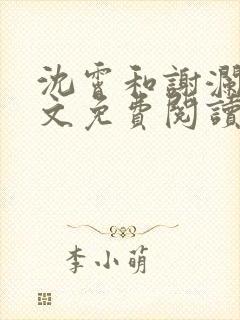 沈霄和謝瀾
文免費閱讀
李小萌